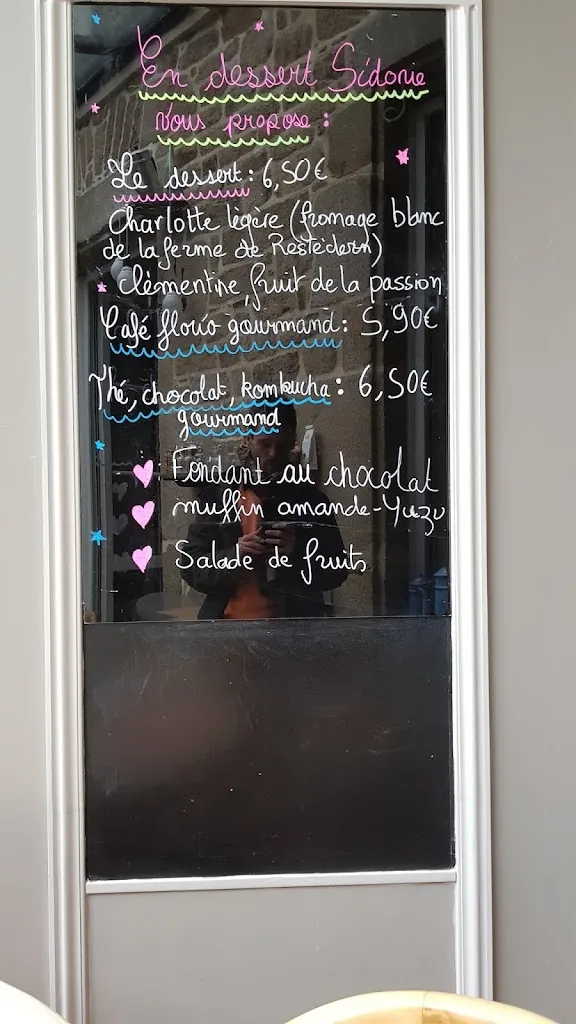 En dessert Sidonie
vous propose :
Le dessert : 6,50€
Charlotte légère (fromage blanc
de la ferme de Restédern)
Clémentine, fruit de la passion
Café florio gourmand : 5,90€
Thé, chocolat, kombucha : 6,50€
gourmand
Fondant au chocolat
muffin amande-Yuzu
Salade de fruits